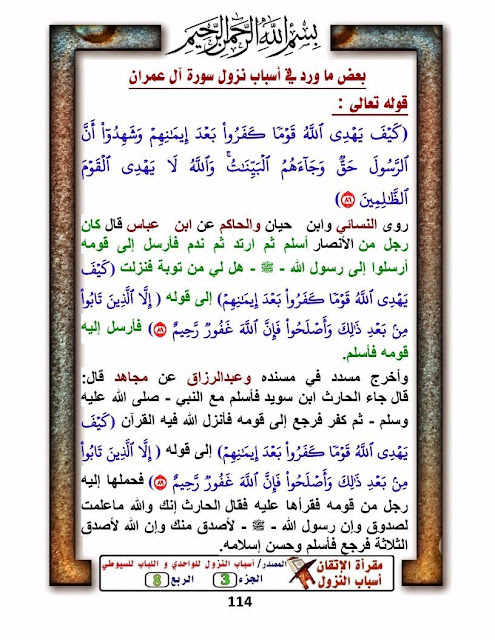 بسم الله الرحمن الرحيم
بعض ما ورد في أسباب نزول سورة آل عمران
قوله تعالى :
(كَيْفَ يَهْدِى ٱللَّهُ قَوْمًا كَفَرُوا۟ بَعْدَ إِيمَـٰنِهِمْ وَشَهِدُوٓا۟ أَنَّ
ٱلرَّسُولَ حَقٌّ وَجَآءَهُمُ ٱلْبَيِّنَـٰتُ ۚ وَٱللَّهُ لَا يَهْدِى ٱلْقَوْمَ
ٱلظَّـٰلِمِينَ ﴿٨٦﴾)
روى النسائي وابن حيان والحاكم عن ابن عباس قال كان
رجل من الأنصار أسلم ثم ارتد ثم ندم فأرسل إلى قومه
أرسلوا إلى رسول الله - ﷺ - هل لي من توبة فنزلت (كَيْفَ
يَهْدِى ٱللَّهُ قَوْمًا كَفَرُوا۟ بَعْدَ إِيمَـٰنِهِمْ) إلى قوله ( إِلَّا ٱلَّذِينَ تَابُوا۟
مِنۢ بَعْدِ ذَٰلِكَ وَأَصْلَحُوا۟ فَإِنَّ ٱللَّهَ غَفُورٌ رَّحِيمٌ ﴿٨٩﴾) فأرسل إليه
قومه فأسلم.
وأخرج مسدد في مسنده وعبدالرزاق عن مجاهد قال:
قال جاء الحارث ابن سويد فأسلم مع النبي - صلى الله عليه
وسلم - ثم كفر فرجع إلى قومه فأنزل الله فيه القرآن (كَيْفَ
يَهْدِى ٱللَّهُ قَوْمًا كَفَرُوا۟ بَعْدَ إِيمَـٰنِهِمْ) إلى قوله ( إِلَّا ٱلَّذِينَ تَابُوا۟
مِنۢ بَعْدِ ذَٰلِكَ وَأَصْلَحُوا۟ فَإِنَّ ٱللَّهَ غَفُورٌ رَّحِيمٌ ﴿٨٩﴾) فحملها إليه
رجل من قومه فقرأها عليه فقال الحارث إنك والله ماعلمت
لصدوق وإن رسول الله - ﷺ - لأصدق منك وإن الله لأصدق
الثلاثة فرجع فأسلم وحسن إسلامه.
مقرأة الإتقان
أسباب النزول
المصدر/ أسباب النزول للواحدي و اللباب للسيوطي
الجزء 3 الربع 8
114